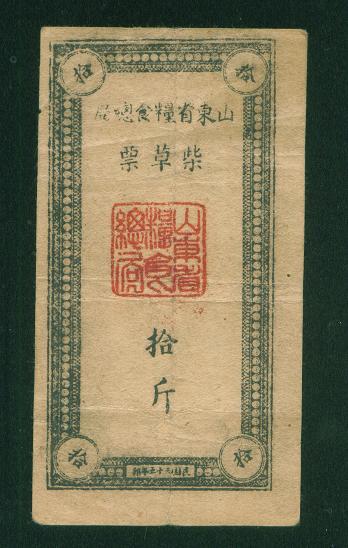 拾 拾
山東省糧食總局
柴草票
山東省
糧食
總局
拾
斤
拾 拾
民国三十五年印